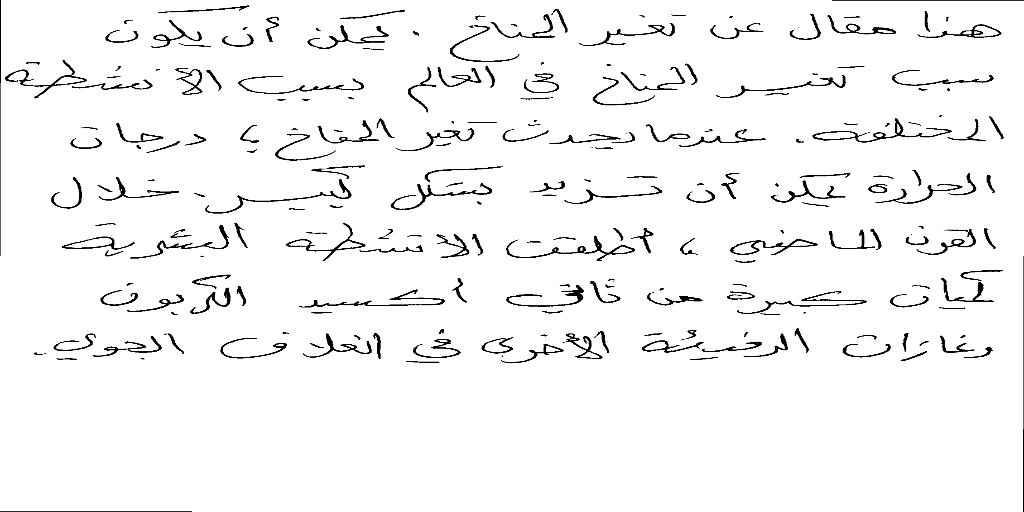 هذا مقال عن تغير المناخ . يمكن أن يكون
سبب تغير المناخ في العالم بسبب الأنشطة
المختلفة . عندما يحدث تغير المناخ ، درجات
الحرارة يمكن أن تزيد بشكل كبير . خلال
القرن الماضي ، أطلقت الانشطة البشرية
كميات كبيرة من ثاني أكسيد الكربون
وغازات الدفيئة الأخرى في الغلاف الجوي .